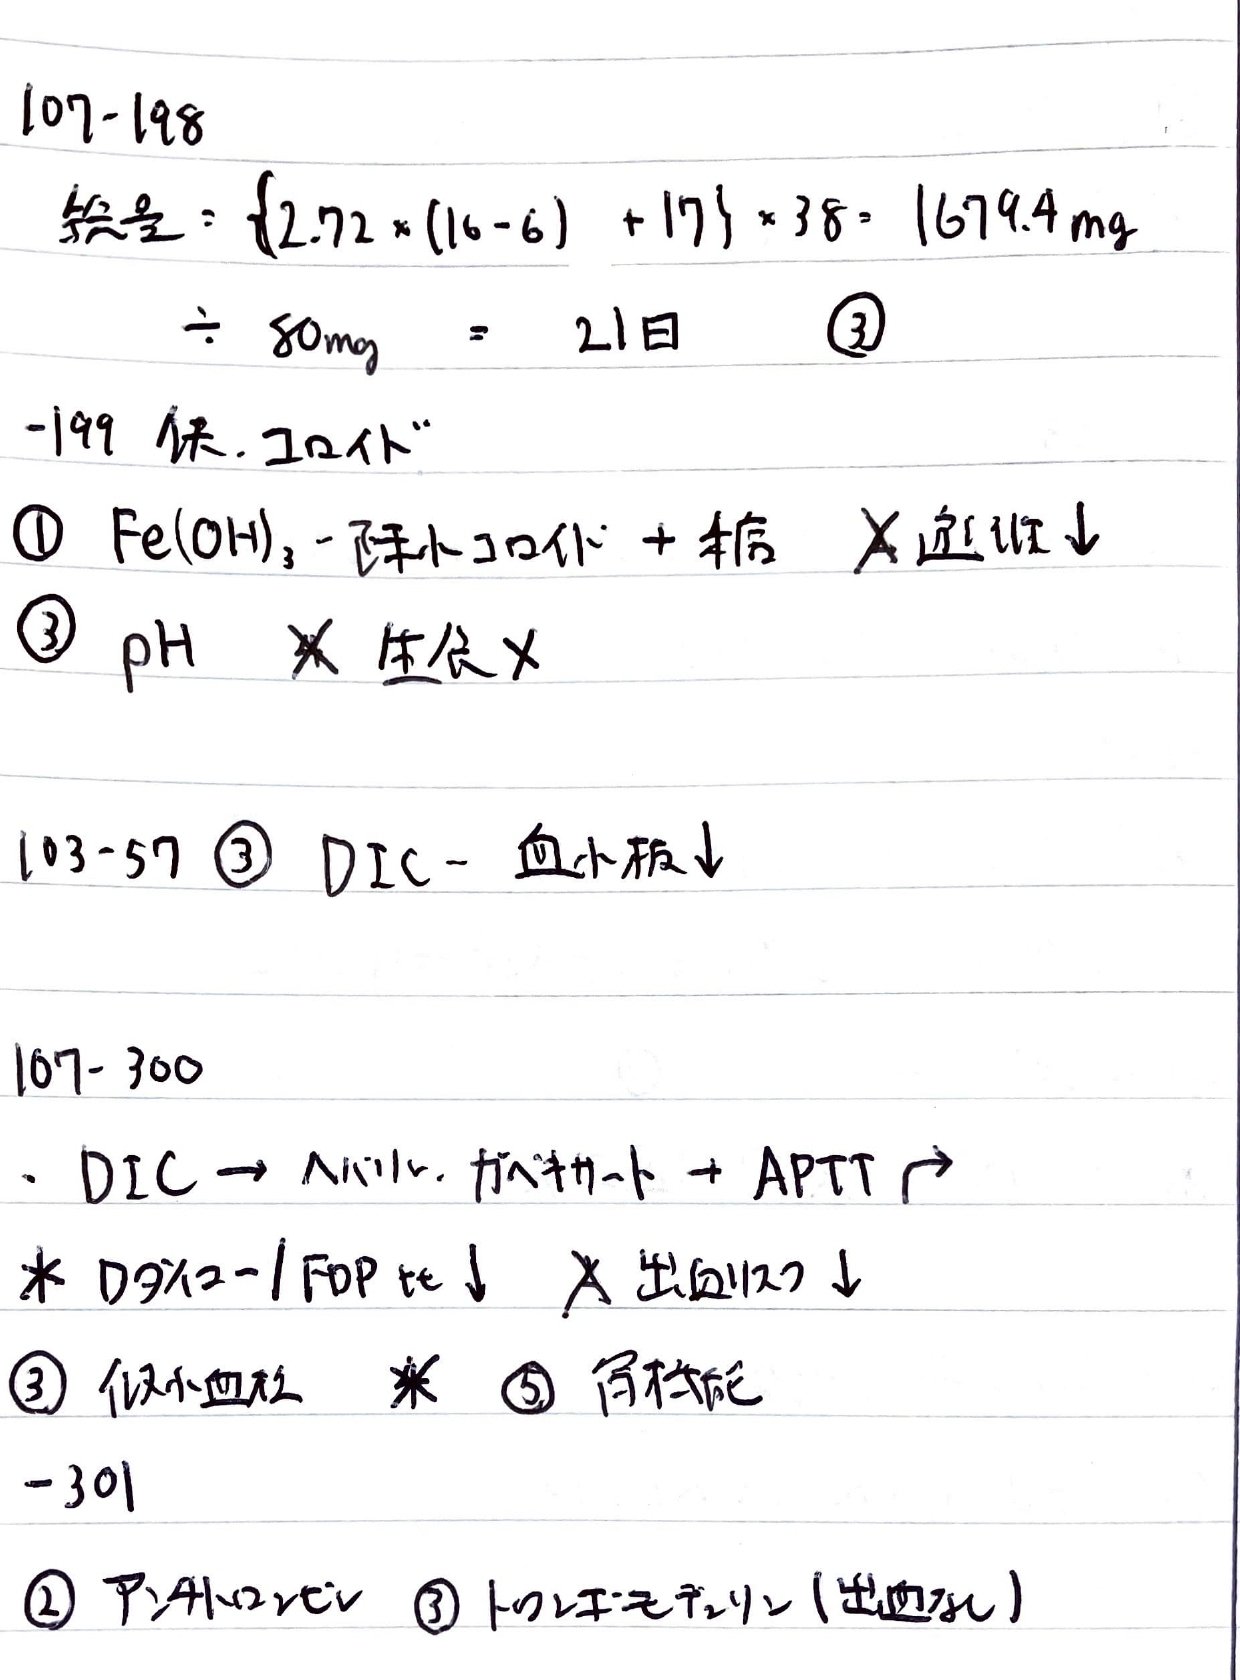 107-198
総量 = {2.72 × (16-6) + 17} × 38 = 1679.4mg
÷ 80mg = 21日 ③
-199 保.コロイド
① Fe(OH)₃ - 疎水コロイド + 糖 X 逆従↓
③ pH X 生食 X
103-57 ③ DIC - 血小板↓
107-300
・DIC → ヘパリン. ガベキサート → APTT ↱
* Dダイマー/FDP比↓ X 出血リスク↓
③ 微小血栓 * ⑤ 腎機能
-301
② アンチトロンビン ③ トロンボモデュリン (出血なし)